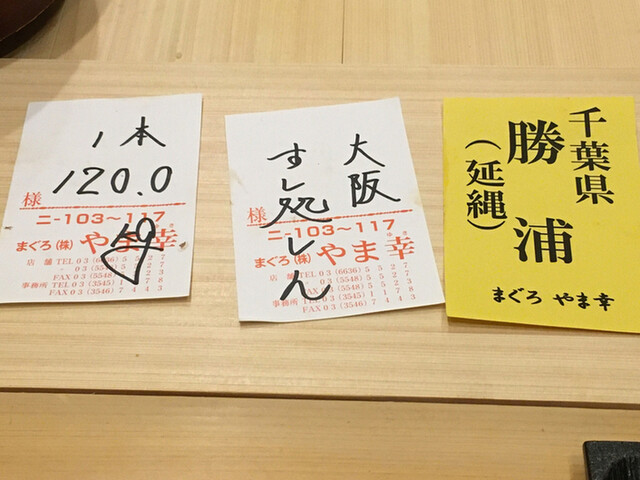 1本
120.0
様
ニ-103〜117
まぐろ(株)やま幸
店舗 TEL 03 (6636) 5527
03 (5548) 5527
FAX 03 (5548) 5523
事務所 TEL 03 (3545) 1178
FAX 03 (3546) 7443
大阪
すし処しん
様
ニ-103〜117
まぐろ(株)やま幸
店舗 TEL 03 (6636) 5527
03 (5548) 5527
FAX 03 (5548) 5523
事務所 TEL 03 (3545) 1178
FAX 03 (3546) 7443
千葉県
勝浦
(延縄)
まぐろ やま幸